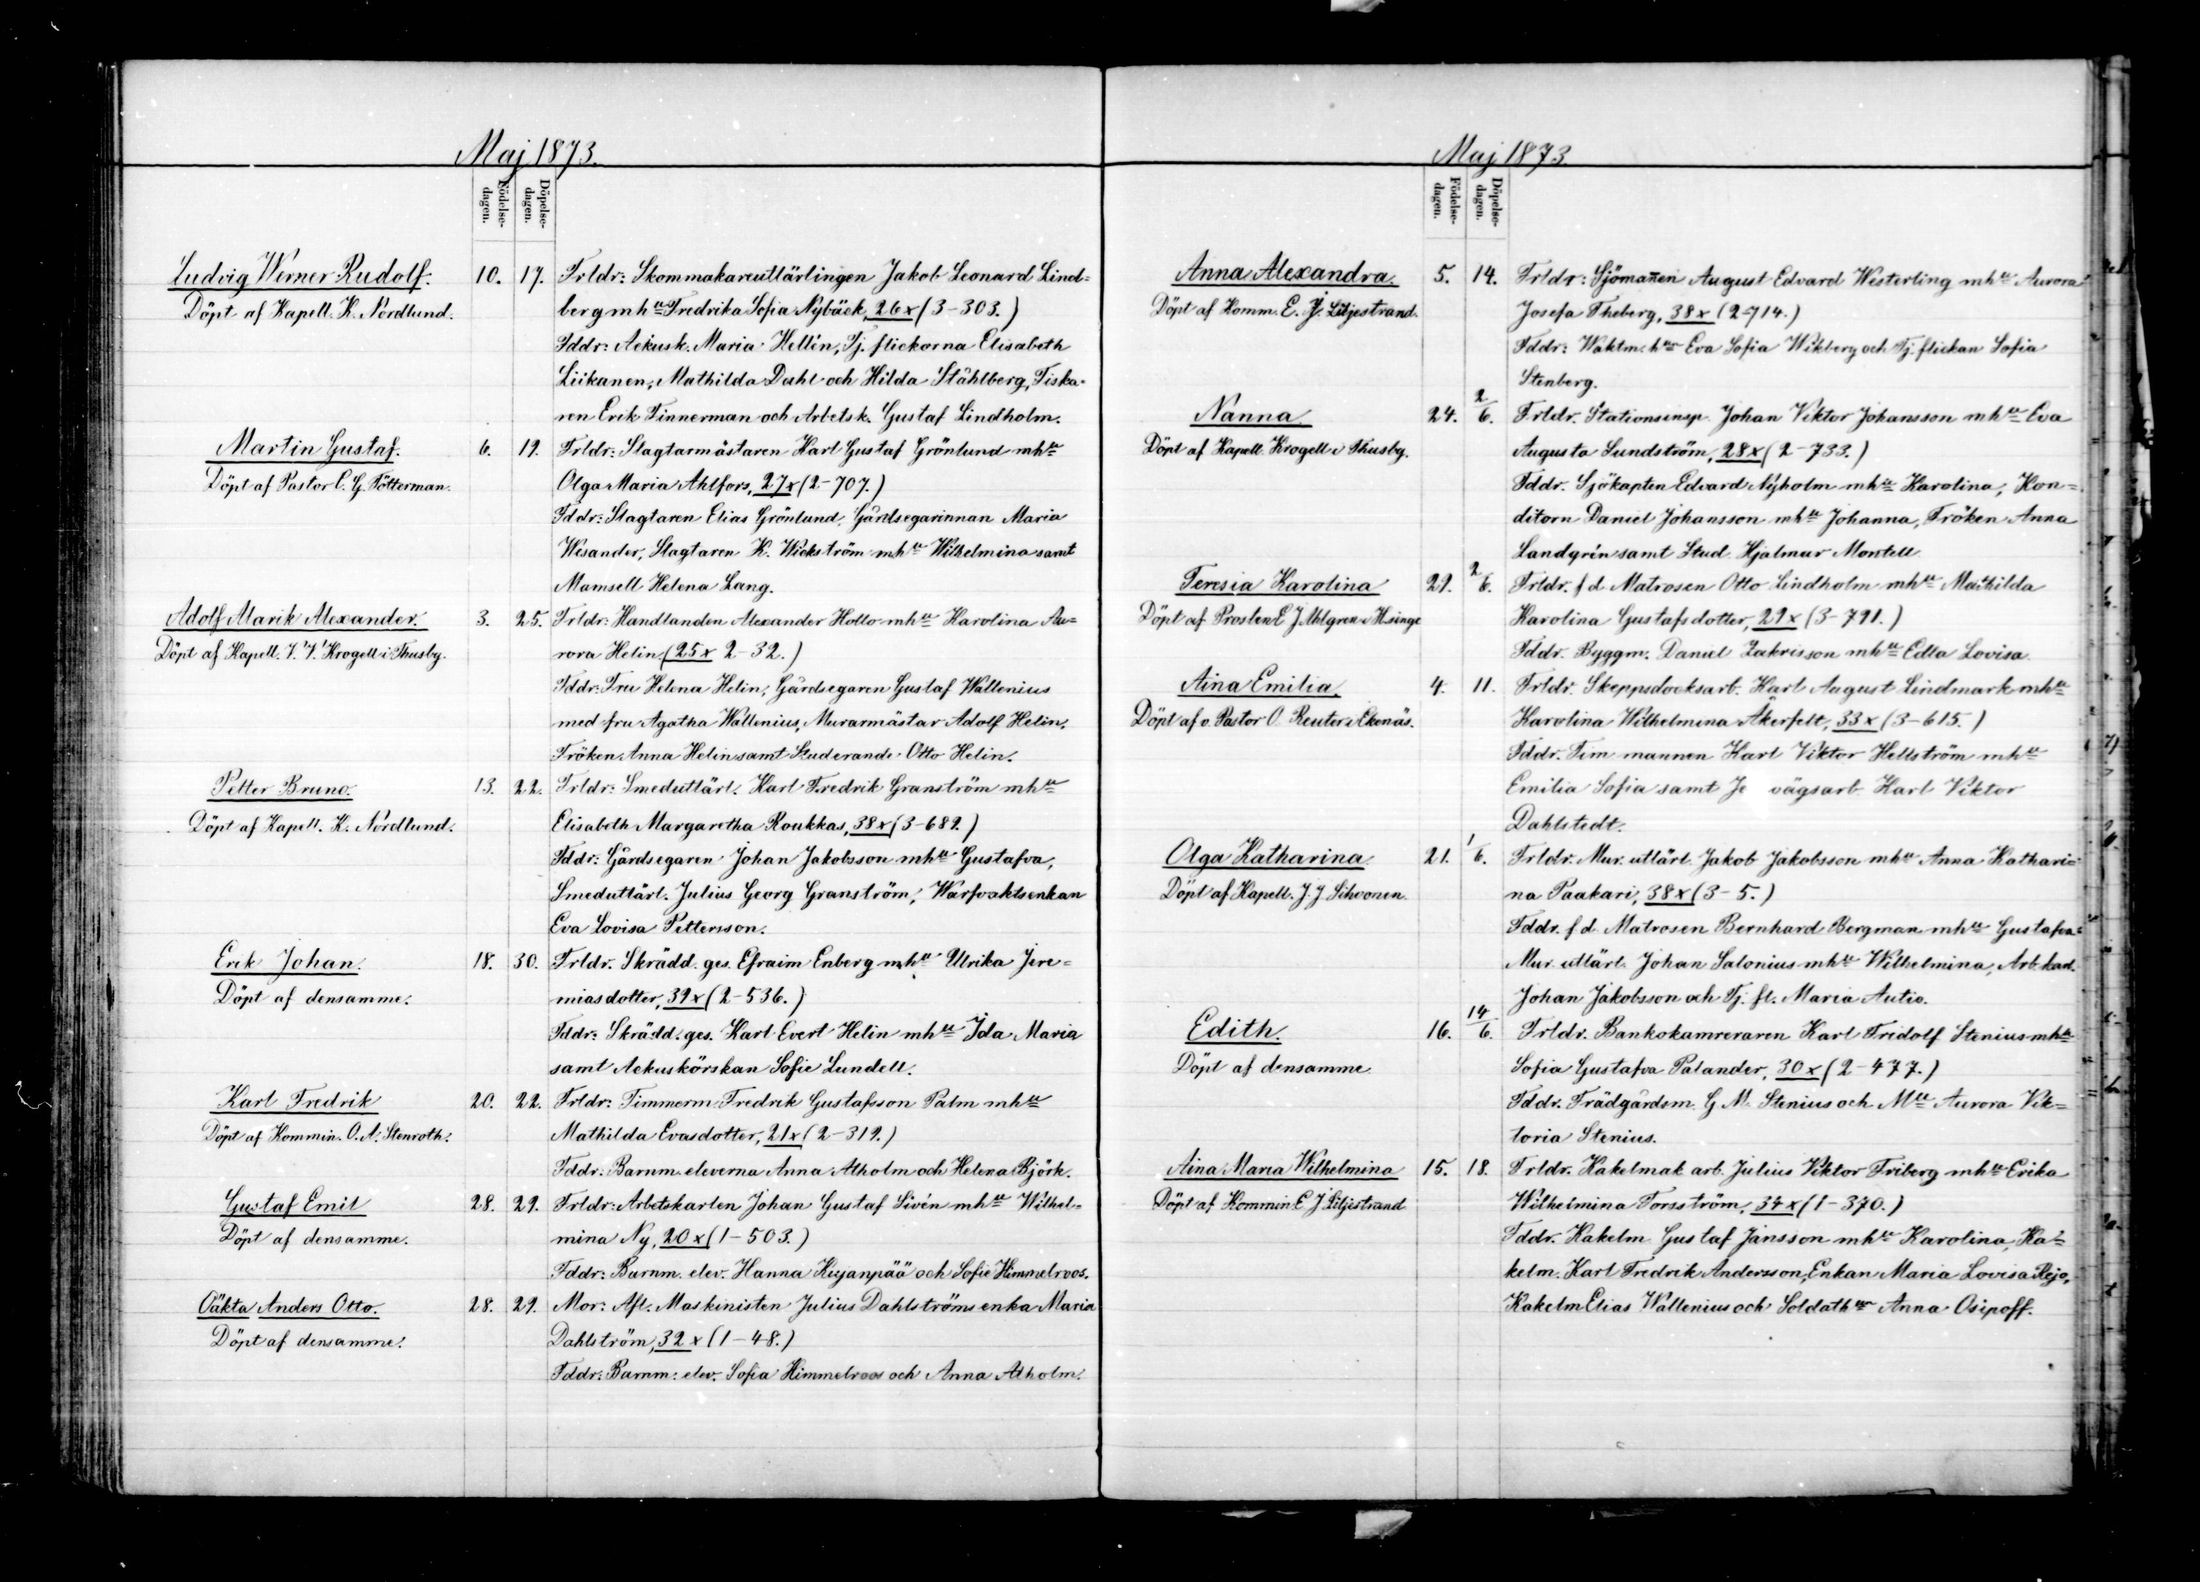 Maj 1873.
Födelse-
dagen.
Döpelse-
dagen.
Ludvig Werner Rudolf. 10. 17. Frldr: Skommakareutlärlingen Jakob Leonard Lind-
Döpt af Kapell. K. Nordlund. berg mhu Fredrika Sofia Nybäck, 26 x (3-303.)
Fddr: Ackusk. Maria Hellén, Tj. flickorna Elisabeth
Liikanen, Mathilda Dahl och Hilda Ståhlberg, Fiska-
ren Erik Finnerman och Arbetsk. Gustaf Lindholm.
Martin Gustaf. 6. 19. Frldr: Slagtarmästaren Karl Gustaf Grönlund mhu
Döpt af Pastor C. G. Tötterman. Olga Maria Ahlfors, 27 x (2-707.)
Fddr: Slagtaren Elias Grönlund, Gårdsegarinnan Maria
Wesander, Slagtaren K. Wickström mhu Wilhelmina samt
Mamsell Helena Lang.
Adolf Alarik Alexander. 3. 25. Frldr: Handlanden Alexander Hollo mhu Karolina Au-
Döpt af Kapell. V. V. Krogell i Thusby. rora Helin (25 x 2-32.)
Fddr: Fru Helena Helin, Gårdsegaren Gustaf Wallenius
med fru Agatha Wallenius, Murarmästar Adolf Helin,
Fröken Anna Helin samt Studerande Otto Helin.
Petter Bruno. 13. 22. Frldr: Smedutlärl. Karl Fredrik Granström mhu
Döpt af Kapell. K. Nordlund. Elisabeth Margaretha Roukkas, 38 x (3-689.)
Fddr: Gårdsegaren Johan Jakobsson mhu Gustafva,
Smedutlärl. Julius Georg Granström, Warfvaktsenkan
Eva Lovisa Pettersson.
Erik Johan. 18. 30. Frldr. Skrädd. ges. Efraim Enberg mhu Ulrika Jere-
Döpt af densamme. miasdotter, 39 x (2-536.)
Fddr: Skrädd. ges. Karl Evert Helin mhu Ida Maria
samt Ackuskörskan Sofie Lundell.
Karl Fredrik 20. 22. Frldr: Timmerm. Fredrik Gustafsson Palm mhu
Döpt af Kommin. O. A. Stenroth. Mathilda Evasdotter, 21 x (2-319.)
Fddr: Barnm. eleverna Anna Alholm och Helena Björk.
Gustaf Emil 28. 29. Frldr: Arbetskarlen Johan Gustaf Sivén mhu Wilhel-
Döpt af densamme. mina Ny, 20 x (1-503.)
Fddr: Barnm. elev. Hanna Kujanpää och Sofie Himmelroos.
Oäkta Anders Otto. 28. 29. Mor: Afl. Maskinisten Julius Dahlströms enka Maria
Döpt af densamme. Dahlström, 32 x (1-48.)
Fddr: Barnm. elev. Sofia Himmelroos och Anna Alholm.
Maj 1873
Födelse-
dagen.
Döpelse-
dagen.
Anna Alexandra. 5. 14. Frldr: Sjömañen August Edvard Westerling mhu Aurora
Döpt af Komm. E. J. Liljestrand. Josefa Theberg, 38 x (2-714.)
Fddr: Waktm. hun Eva Sofia Wikberg och Tj. flickan Sofia
Stenberg.
Nanna 24. 2/6. Frldr. Stationsinsp. Johan Viktor Johansson mhu Eva
Döpt af Kapell. Krogell i Thusby. Augusta Sundström, 28 x (2-733.)
Fddr. Sjökapten Edvard Nyholm mhu Karolina, Kon-
ditorn Daniel Johansson mhu Johanna, Fröken Anna
Landgrén samt Stud. Hjalmar Montell
Teresia Karolina 29. 2/6. Frldr. f d Matrosen Otto Lindholm mhu Mathilda
Döpt af Prosten E J Ahlgren i H.singe Karolina Gustafsdotter, 29 x (3-791.)
Fddr. Byggm. Daniel Zakrisson mhu Edla Lovisa
Aina Emilia 4. 11. Frldr. Skeppsdocksarb. Karl August Lindmark mhu
Döpt af v. Pastor O. Reuter i Ekenäs. Karolina Wilhelmina Åkerfelt, 33 x (3-615.)
Fddr. Tim mannen Karl Viktor Hellström mhu
Emilia Sofia samt Je vägsarb. Karl Viktor
Dahlstedt.
Olga Katharina 21. 1/6. Frldr. Mur. utlärl. Jakob Jakobsson mhu Anna Kathari-
Döpt af Kapell. J. J. Sihvonen. na Paakari, 38 x (3-5.)
Fddr. f d. Matrosen Bernhard Bergman mhu Gustafva
Mur. utlärl. Johan Salonius mhu Wilhelmina, Arb. karl.
Johan Jakobsson och Tj. fl. Maria Autio.
Edith. 16. 14/6. Frldr. Bankokamreraren Karl Fridolf Stenius mhu
Döpt af densamme. Sofia Gustafva Palander, 30 x (2-477.)
Fddr. Trädgårdsm. G M. Stenius och Mll Aurora Vik-
toria Stenius.
Aina Maria Wilhelmina 15. 18. Frldr. Kakelmak. arb. Julius Viktor Friberg mhu Erika
Döpt af Kommin. E J Liljestrand Wilhelmina Forsström, 34 x (1-370.)
Fddr. Kakelm. Gustaf Jansson mhu Karolina, Ka-
kelm. Karl Fredrik Andersson, Enkan Maria Lovisa Rejo,
Kakelm Elias Wallenius och Soldathun Anna Osipoff.